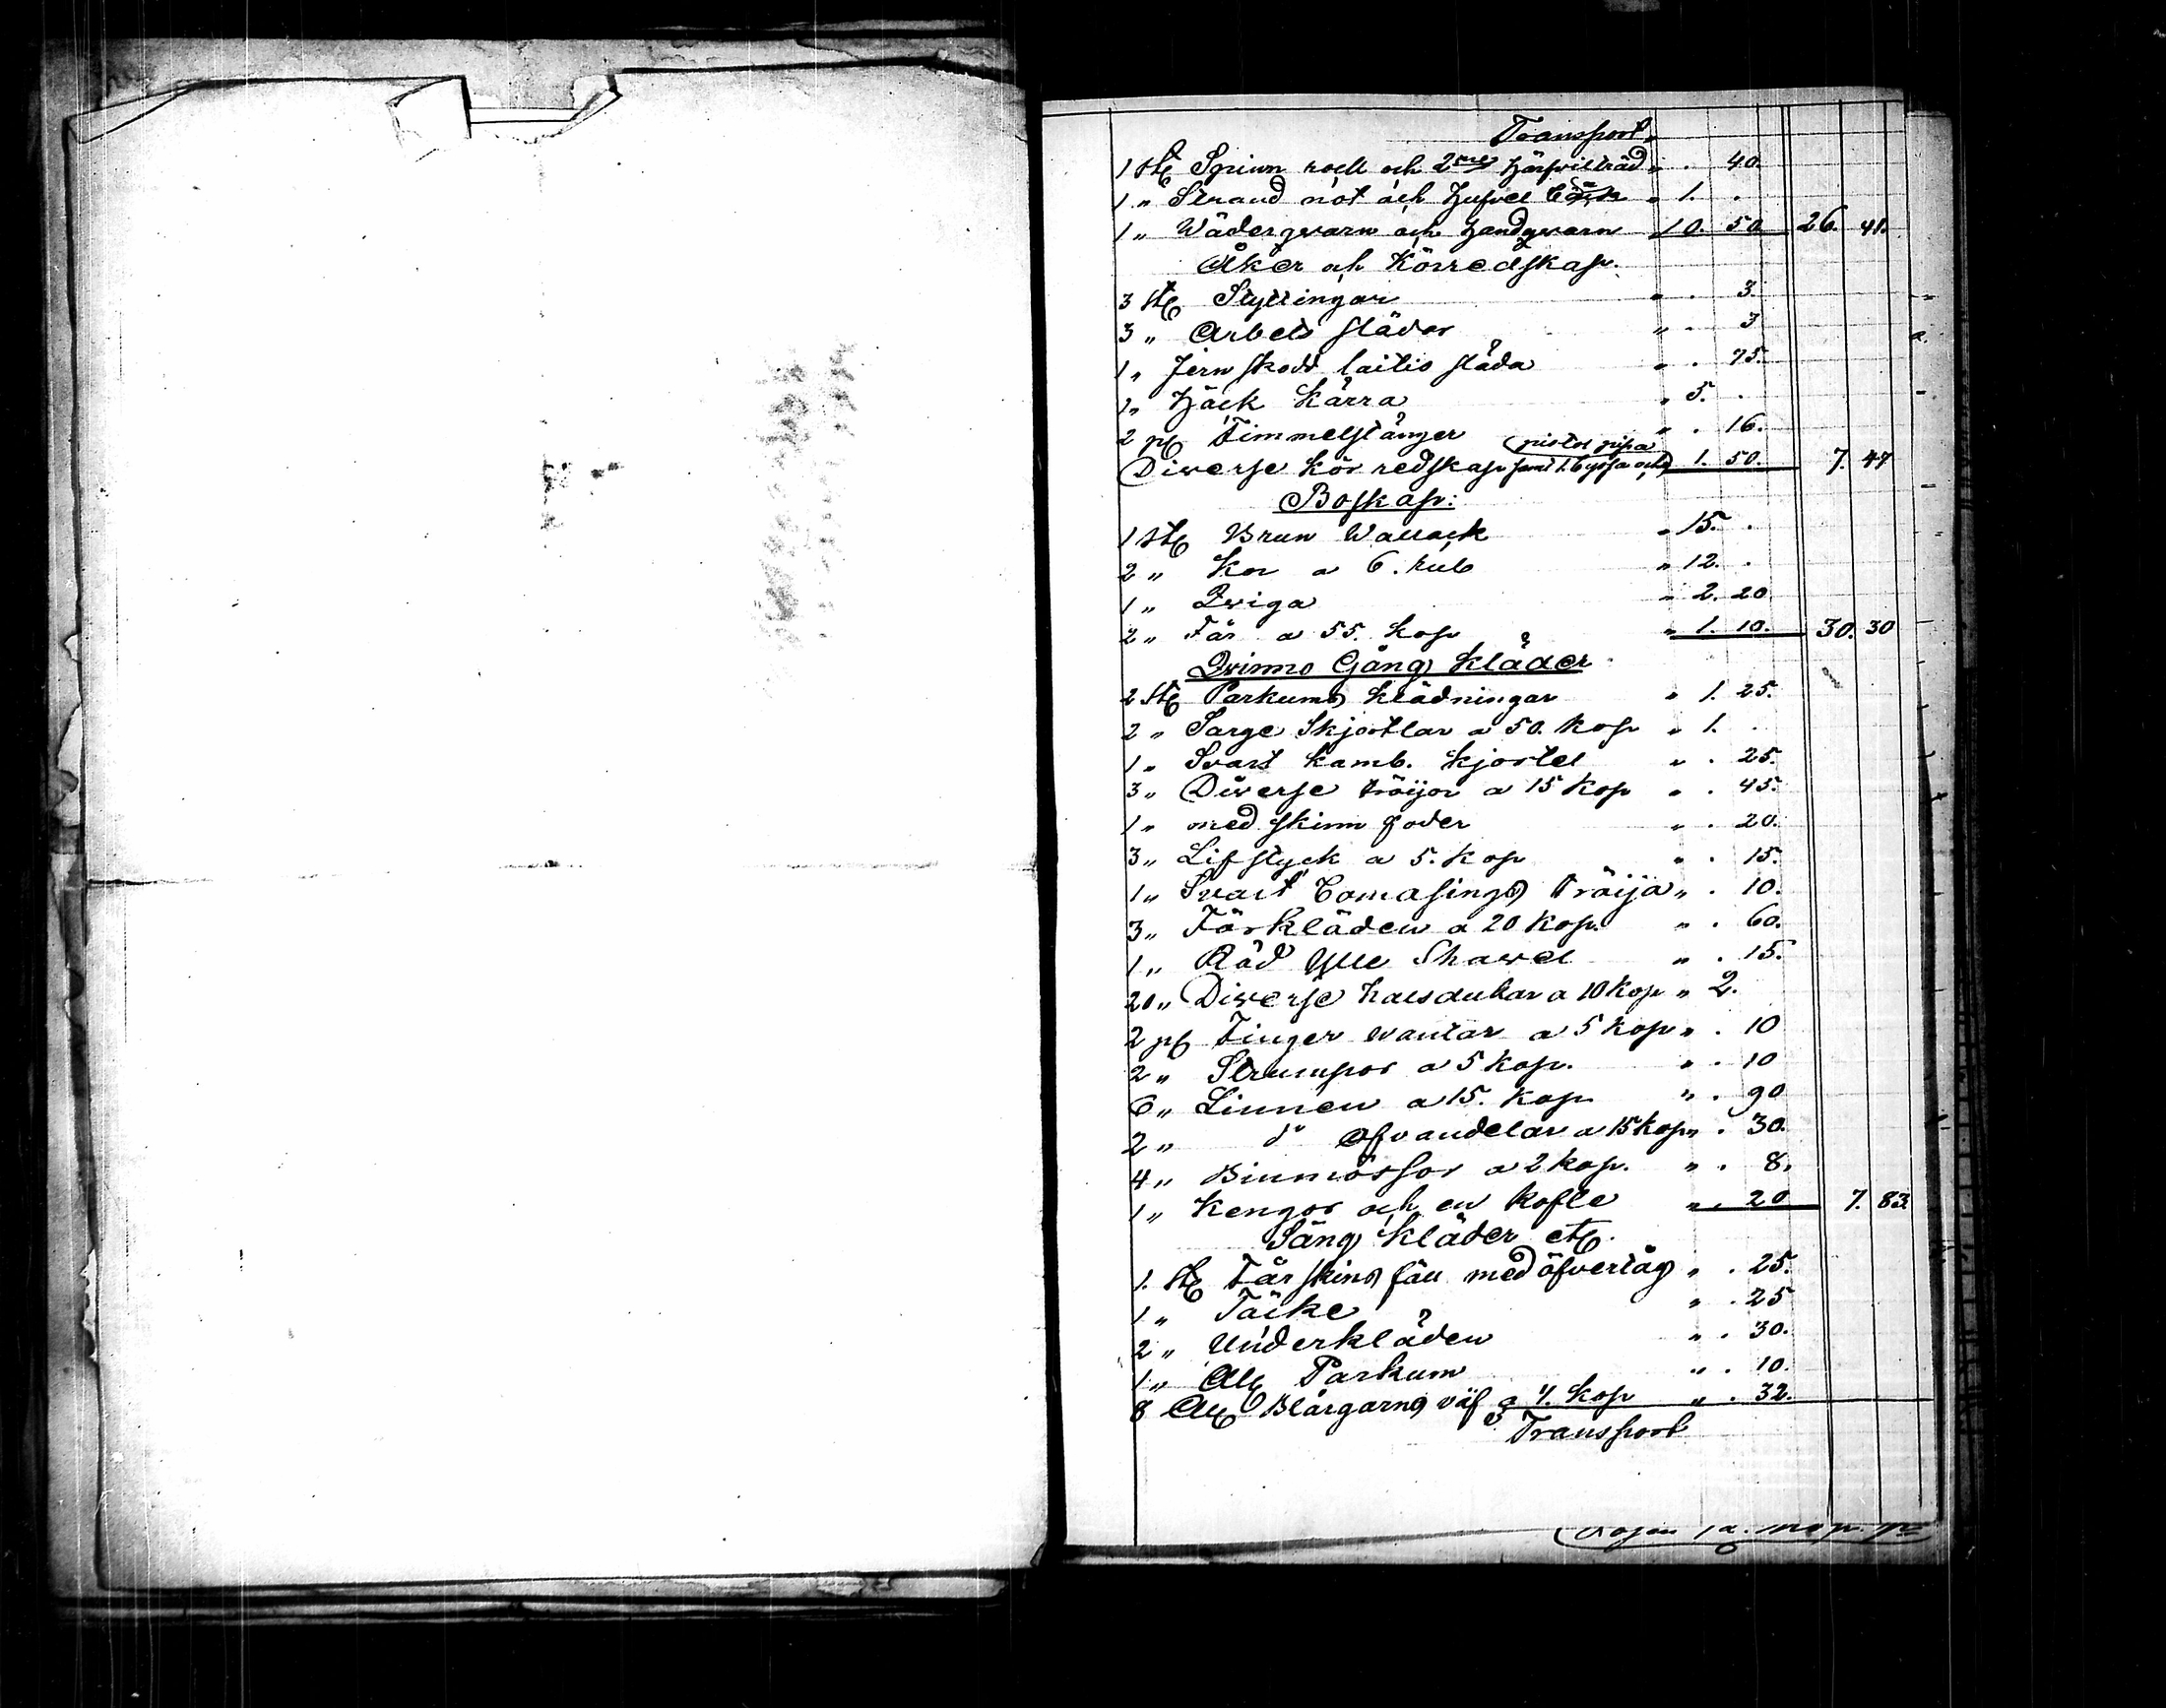 Transport „
1 st Spinn rock och 2ne Härfvilträd „ . 40.
1 „ Strand not och Hufvel bänk „ 1. .
1 „ Wäderqvarn och handqvarn „ 10. 50. 26. 41.
Åker och Körredskap.
3 st Styttingar „ . 3.
3 „ Arbets slädar „ . 3
1 „ Jern skodd laitio släda „ . 75.
1 „ Häck Kärra „ 5. .
2 pr Timmelstänger „ . 16.
pistol pipa
Diverse Kör redskap samt 1. byssa och 1. 50. 7. 47
Boskap:
1 st Brun Wallack „ 15. .
2 „ Kor a 6. rub „ 12. .
1 „ Qviga „ 2. 20
2 „ Får a 55. kop „ 1. 10. 30. 30
Qvinno Gång kläder
2 st Parkums klädningar „ 1. 25.
2 „ Sarge Skjortlar a 50. kop „ 1. .
1 „ Svart kamb. kjortel „ . 25.
3 „ Diverse tröijor a 15 kop „ . 45.
1 „ med skinn foder „ . 20.
3 „ Lifstyck a 5. kop „ . 15.
1 „ Svart Bomasings Tröija „ . 10.
3 „ Förkläden a 20 kop. „ . 60.
1 „ Röd Ylle Shawel „ . 15.
20 „ Diverse halsdukar a 10 kop „ 2.
2 pr Finger vantar a 5 kop „ . 10
2 „ Strumpor a 5 kop. „ . 10
6 „ Linnen a 15. kop „ . 90
2 „ do Ofvandelar a 15 kop „ . 30.
4 „ Binmössor a 2 kop. „ . 8.
1 „ Kengor och en kofte „ . 20 7. 83
Säng kläder etc.
1. st Fårskins fäll med öfvertåg „ . 25.
1 „ Täcke „ . 25
2 „ Underkläden „ . 30.
1 „ Aln Parkum „ . 10.
8 Aln Blårgarns väf a 4. kop „ . 32.
Transport